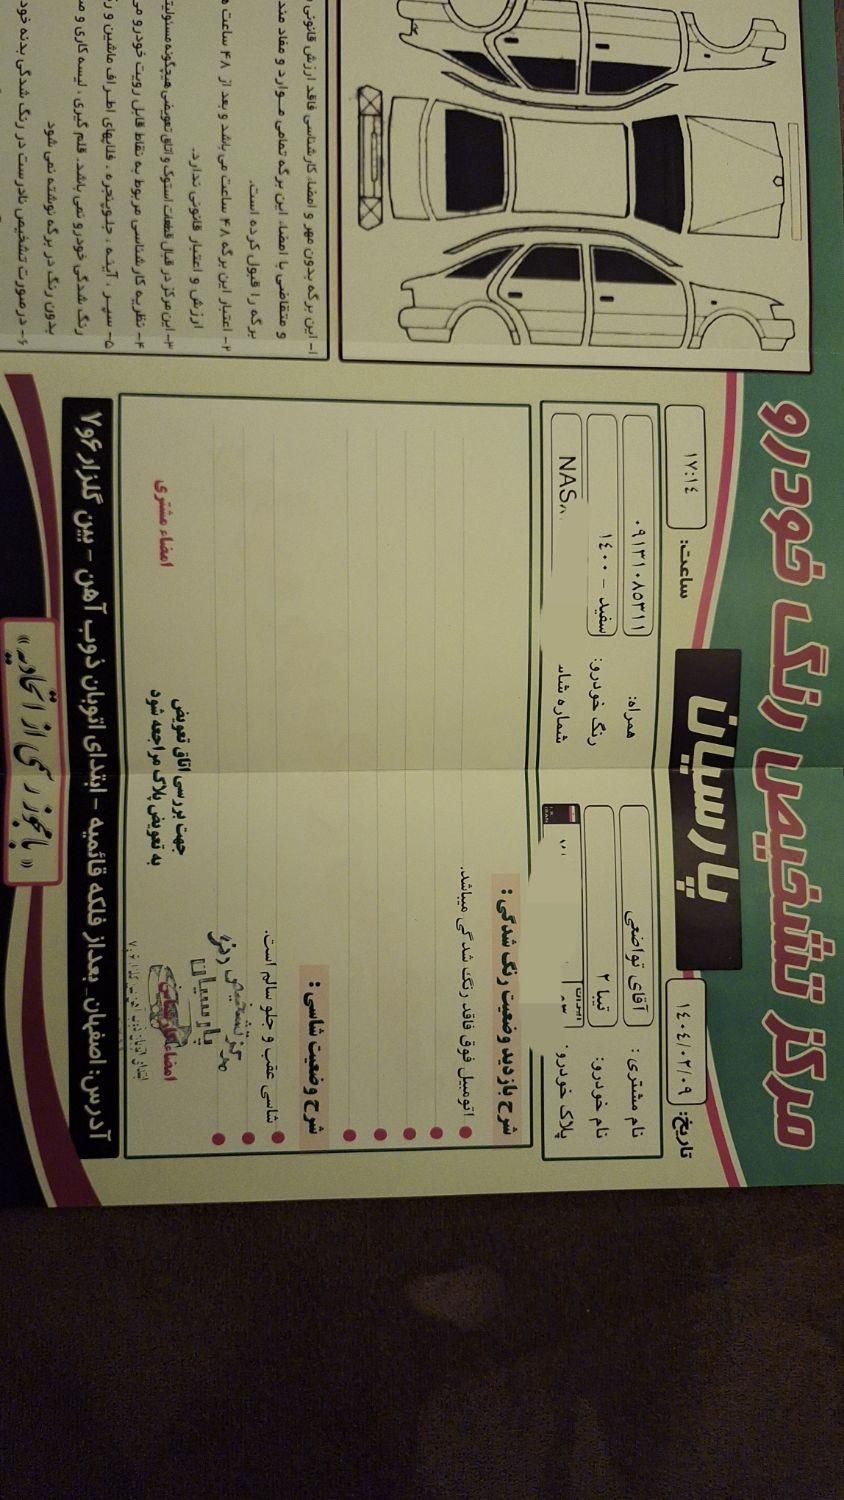 مرکز تشخیص رنگ خودرو
پارسیان
تاریخ: ۱۴۰۴/۰۲/۰۹
ساعت: ۱۷:۱۴
نام مشتری: آقای تواضعی
همراه: ۰۹۱۳۱۰۸۵۳۱۱
نام خودرو: تیبا ۲
رنگ خودرو: سفید - ۱۴۰۰
پلاک خودرو:
شماره شاس NAS
شرح بازدید وضعیت رنگ شدگی:
اتومبیل فوق فاقد رنگ شدگی میباشد.
شرح وضعیت شاسی:
شاسی عقب و جلو سالم است.
مرکز تشخیص رنگ
پارسیان
امضاء کارشناس
جهت بررسی اتاق تعویض
به تعویض پلاک مراجعه شود
امضاء مشتری
آدرس: اصفهان - بعداز فلکه قائمیه - ابتدای اتوبان ذوب آهن - بین گلزار ۶و۷
«با مجوز رسمی از اتحادیه»
۱- این برگه بدون مهر و امضاء کارشناسی فاقد ارزش قانونی
و متقاضی با امضاء این برگه تمامی موارد و مفاد مند
برگه را قبول کرده است.
۲- اعتبار این برگه ۴۸ ساعت می باشد و بعد از ۴۸ ساعت
ارزش و اعتبار قانونی ندارد.
۳- این مرکز در قبال قطعات استوک و اتاق تعویضی هیچگونه مسئولیت
۴- نظریه کارشناسی مربوط به نقاط قابل رویت خودرو می
۵- سپر، آینه، جلوپنجره، قلابهای اطراف ماشین و
رنگ شدگی خودرو نمی باشد. قلم گیری، لیسه کاری و
بدون رنگ در برگه نوشته نمی شود
۶- درصورت تشخیص نادرست در رنگ شدگی بدنه خود